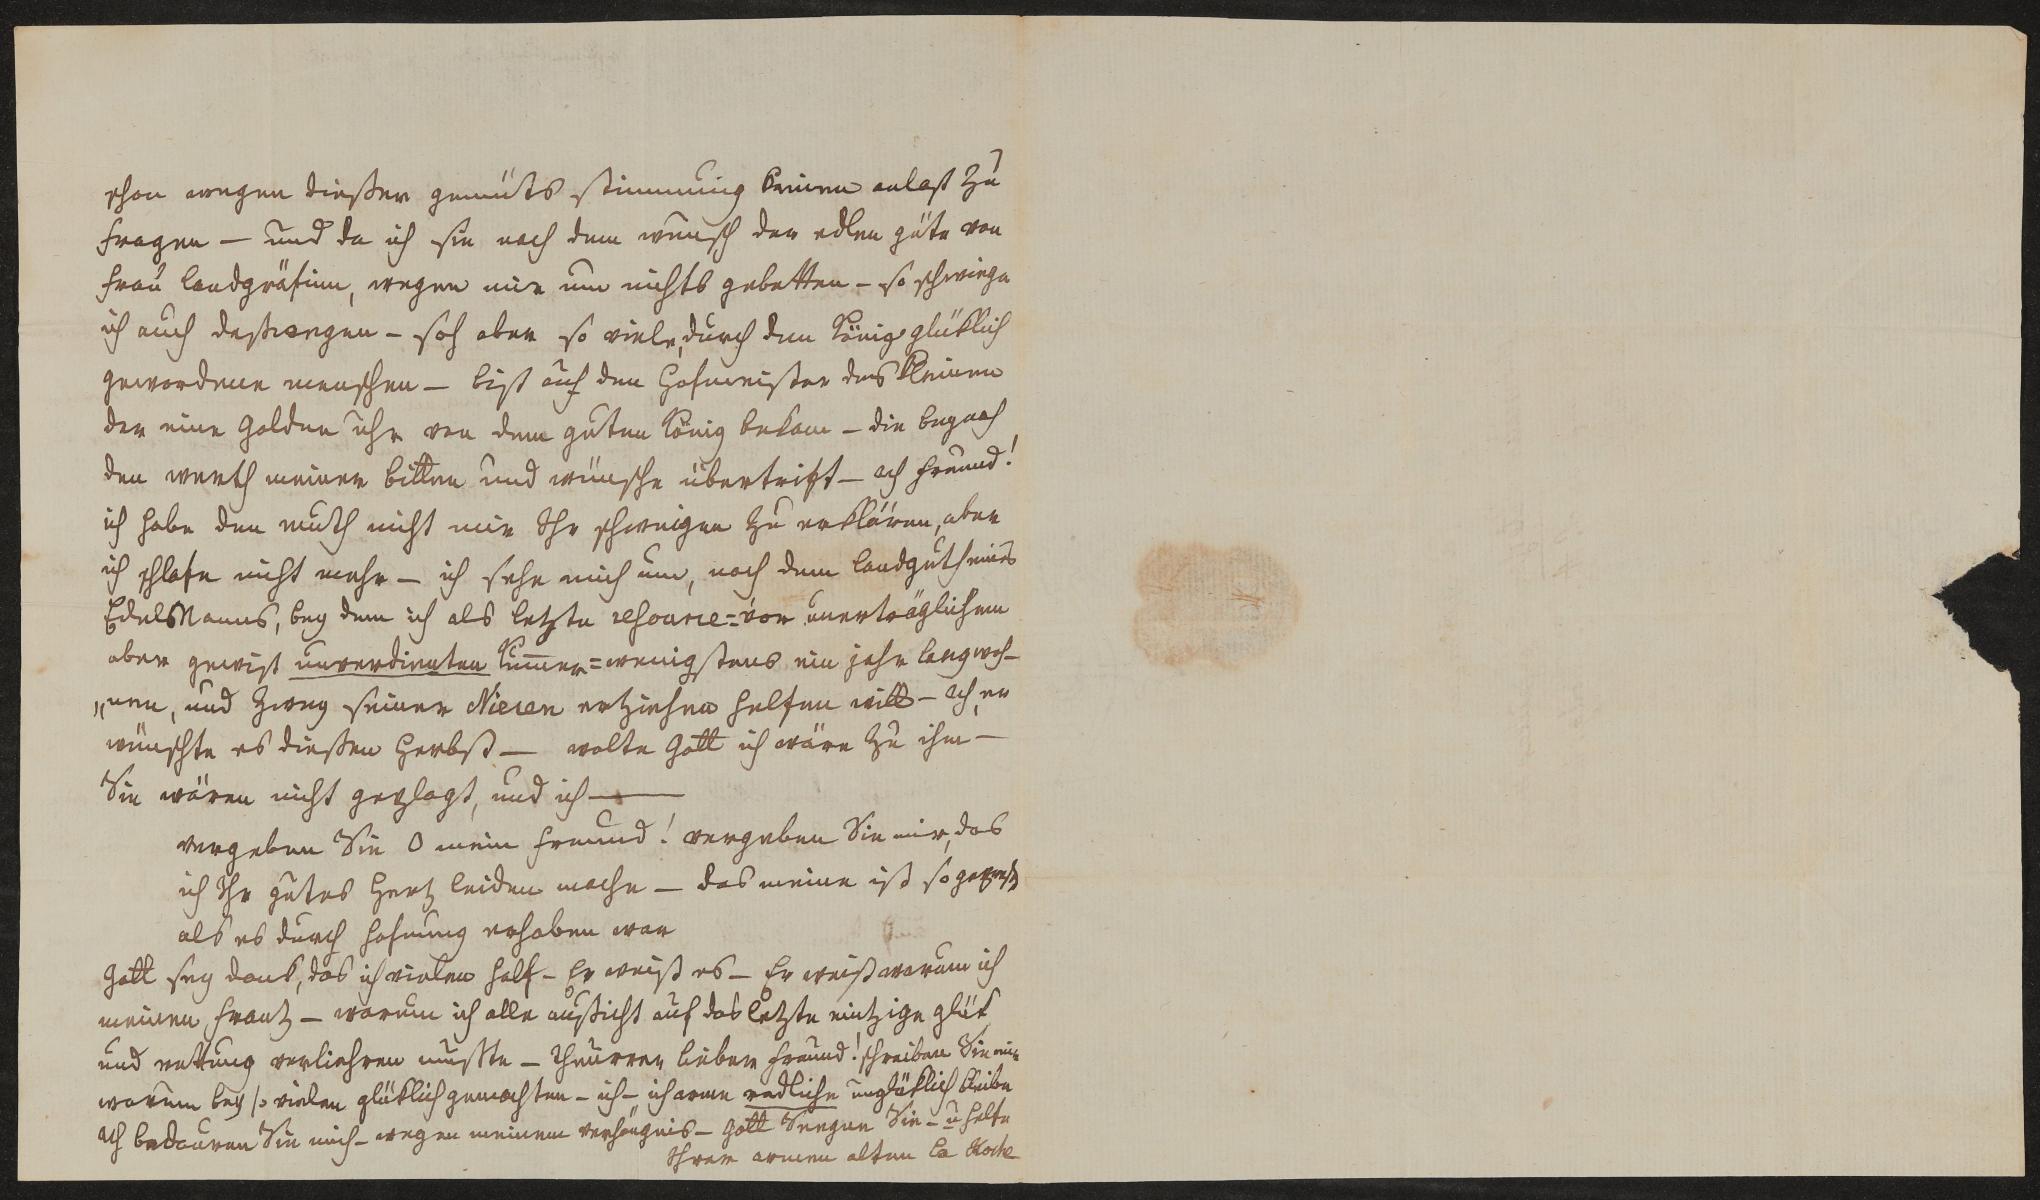 schon wegen dießer gemüts stimmung keinen anlaß zu
fragen — und da ich sie nach dem wunsch der edlen güte von
frau landgräfinn, wegen mir um nichts gebetten — so schwiege
ich auch deßwegen — sah aber so viele, durch den König glüklich
gewordene menschen — biß auf den Hofmeister des kleinen
der eine Goldne uhr von dem guten König bekam — die beynah
den werth meiner bitten und wünsche übertrift — ach Freund!
ich habe den muth nicht mir Ihr schweigen zu erklären, aber
ich schlafe nicht mehr — ich sehe mich um, nach dem landguth eines
EdelManns, bey dem ich als letzte resource = vor unerträglichem
aber gewiß unverdienten Kummer = wenigstens ein jahr lang woh-
„nen, und zwey seiner Niecen ertziehen helfen will — ach, er
wünschte es dießen Herbst — wolte Gott ich wäre zu ihm —
Sie wären nicht geplagt, und ich ———
vergeben Sie O mein Freund! vergeben Sie mir, das
ich Ihr gutes Hertz leiden mache — das meine ist so gepreßt
als es durch hofnung erhoben war
Gott sey dank, das ich vielen half — Er weiß es — Er weiß warum ich
meinen Frantz — warum ich alle außsicht auf das letzte eintzige glük
und rettung verliehren mußte — theurer lieber Freund! schreiben Sie mir
warum bey so vielen glüklich gemachten — ich — ich arme redliche unglüklich bleibe
ach bedauren Sie mich — wegen meinem verhängnis — Gott Seegne Sie — u helfe
Ihrer armen alten La Roche